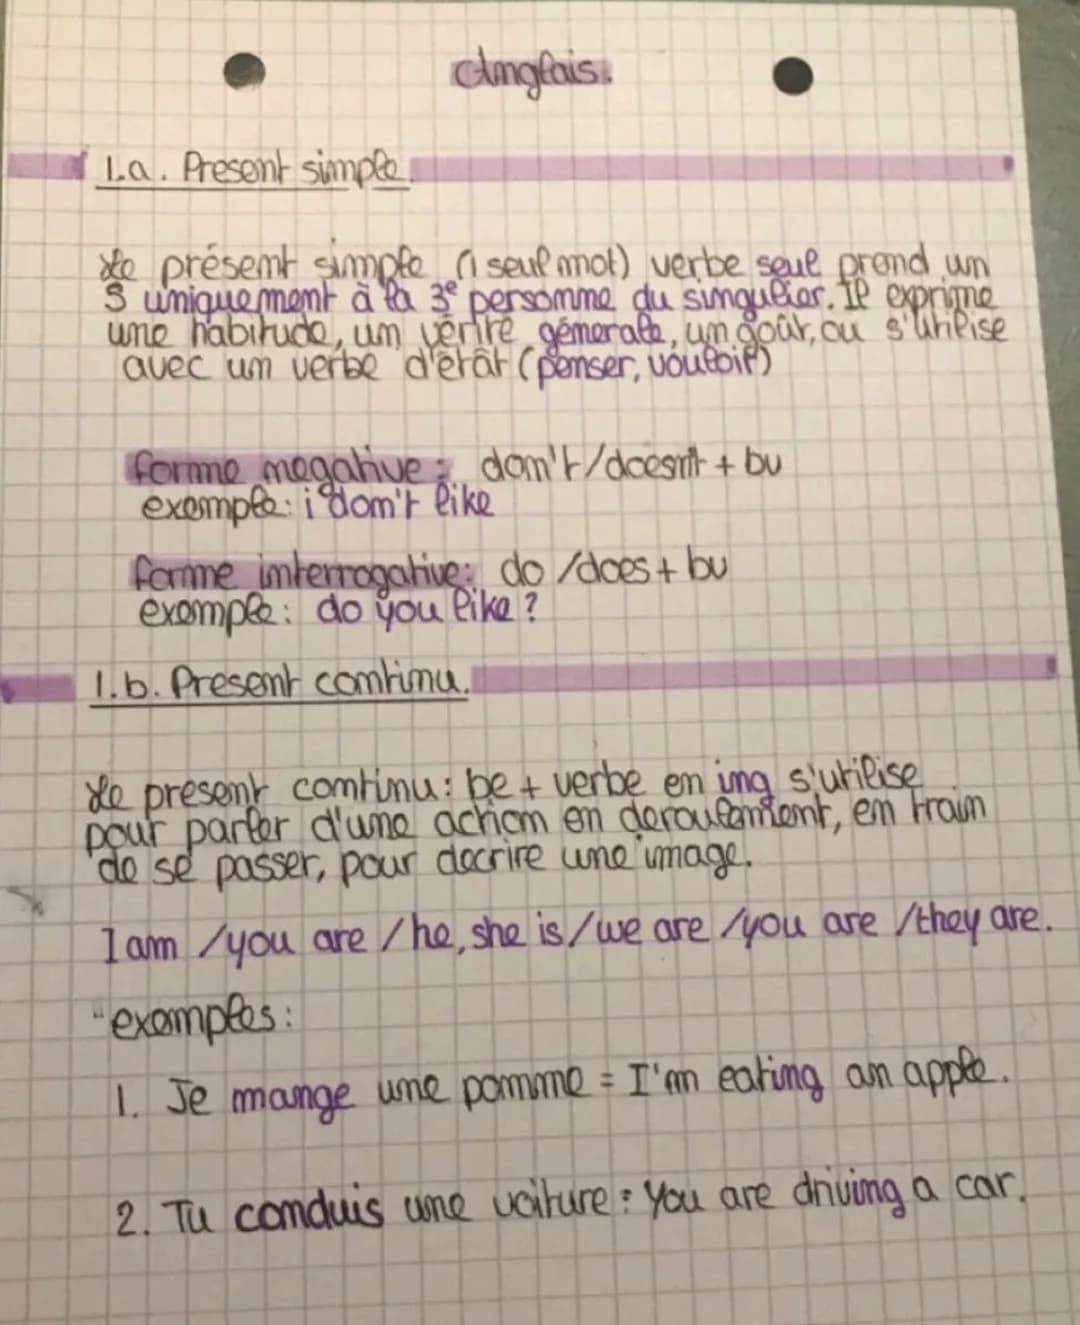 Anglais.
1.a. Present simple
Le présent simple (1 seul mot) verbe seul prend un
S uniquement à la 3e personne du singulier. Il exprime
une habitude, un vérité génerale, un goût, ou s'utilise
avec un verbe d'étât (penser, vouloir)
forme negative : don't/doesn't + bv
exemple: i don't like
forme interrogative: do /does + bv
exemple: do you like ?
1.b. Present continu.
Le present continu: be + verbe en ing s'utilise
pour parler d'une action en deroulement, en train
de se passer, pour decrire une image.
I am /you are /he, she is/we are /you are /they are.
exemples:
1. Je mange une pomme = I'm eating an apple.
2. Tu conduis une voiture = You are driving a car.